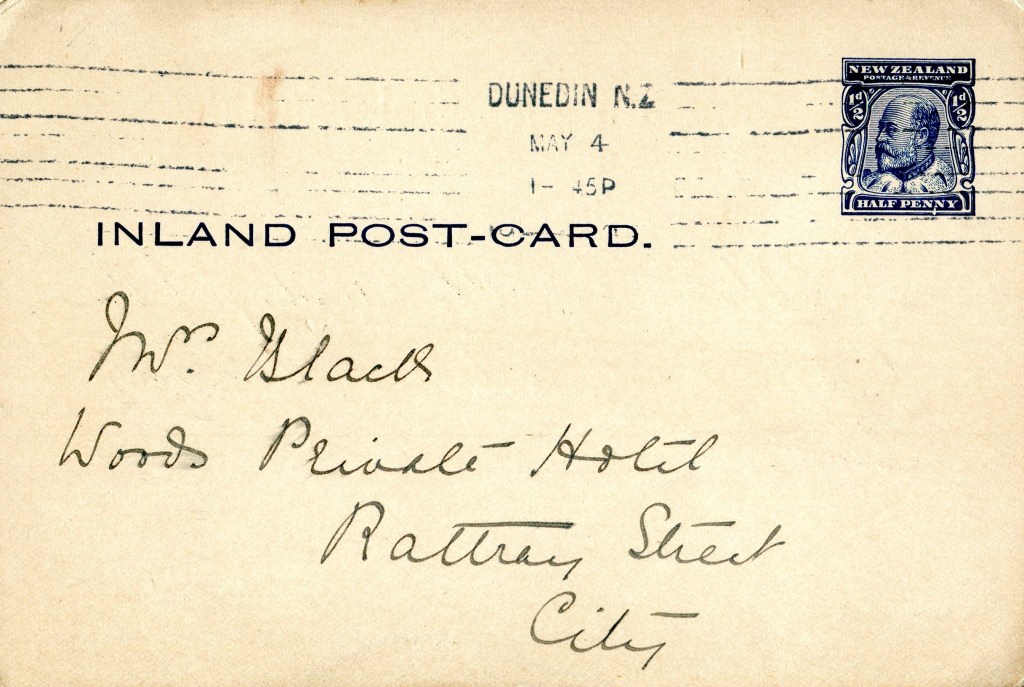 NEW ZEALAND
POSTAGE & REVENUE
½d ½d
HALF PENNY
DUNEDIN N.Z
MAY 4
1- 45P
INLAND POST-CARD.
Mrs. Black
Woods Private Hotel
Rattray Street
City